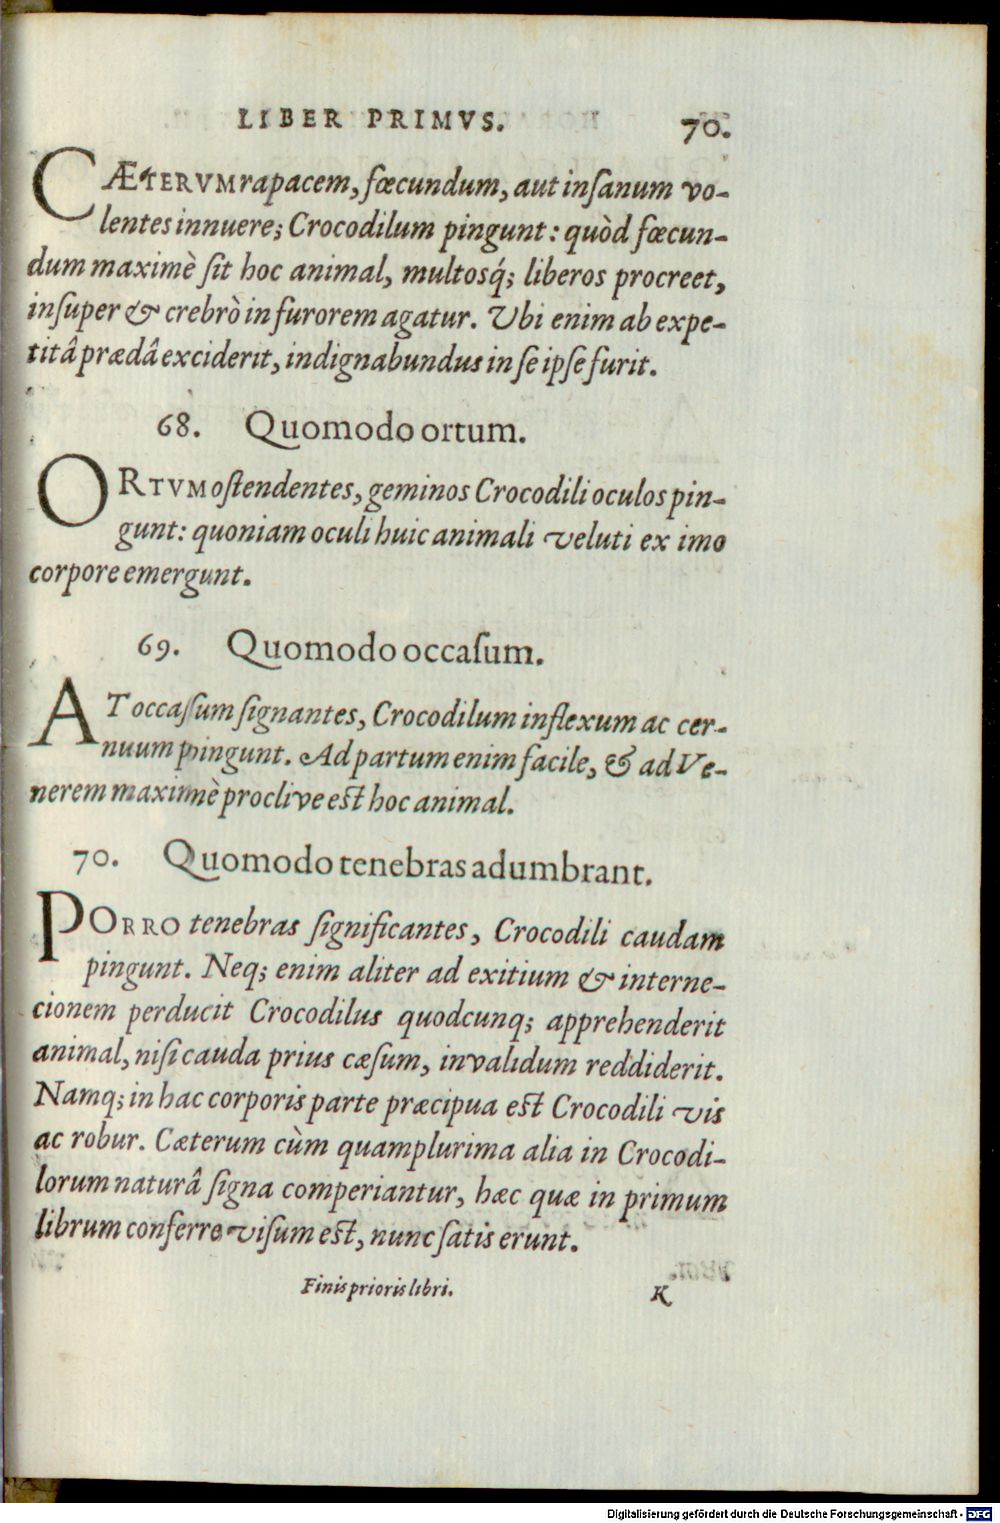 LIBER PRIMVS. 70.
CÆTERVM rapacem, fœcundum, aut inſanum vo-
lentes innuere; Crocodilum pingunt: quòd fœcun-
dum maximè ſit hoc animal, multosq́; liberos procreet,
inſuper & crebrò in furorem agatur. Vbi enim ab expe-
titâ prædâ exciderit, indignabundus in ſe ipſe furit.
68. Quomodo ortum.
ORTVM oſtendentes, geminos Crocodili oculos pin-
gunt: quoniam oculi huic animali veluti ex imo
corpore emergunt.
69. Quomodo occaſum.
AT occaſſum ſignantes, Crocodilum inflexum ac cer-
nuum pingunt. Ad partum enim facile, & ad Ve-
nerem maximè proclive eſt hoc animal.
70. Quomodo tenebras adumbrant.
PORRO tenebras ſignificantes, Crocodili caudam
pingunt. Neq; enim aliter ad exitium & interne-
cionem perducit Crocodilus quodcunq; apprehenderit
animal, niſi cauda prius cæſum, invalidum reddiderit.
Namq; in hac corporis parte præcipua eſt Crocodili vis
ac robur. Cæterum cùm quamplurima alia in Crocodi-
lorum naturâ ſigna comperiantur, hæc quæ in primum
librum conferre viſum eſt, nunc ſatis erunt.
Finis prioris libri. K
Digitalisierung gefördert durch die Deutsche Forschungsgemeinschaft - DFG